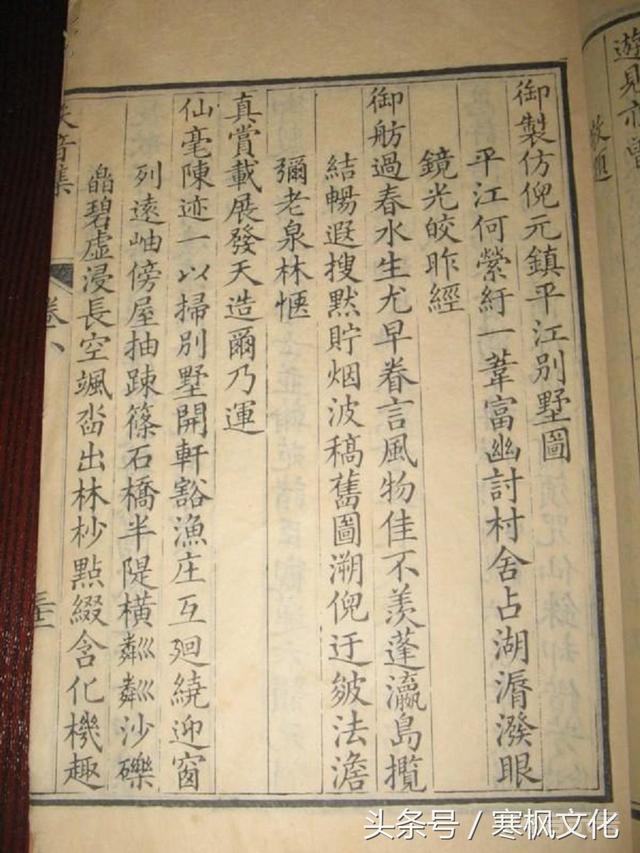 遊見亦
敬題
御製仿倪元鎮平江別墅圖
平江何縈紆一葦富幽討村舍占湖漘潑眼
鏡光皎昨經
御舫過春水生尤早眷言風物佳不羨蓬瀛島攬
結暢遐搜默貯烟波稿舊圖溯倪迂皴法澹
彌老泉林愜
真賞載展發天造爾乃運
仙毫陳迹一以掃別墅開軒豁漁庄互廻繞迎窗
列遠岫傍屋抽踈篠石橋半隄橫粼粼沙礫
皛碧虛浸長空颯沓出林杪點綴含化機趣
音集
卷八
頭条号 / 寒枫文化